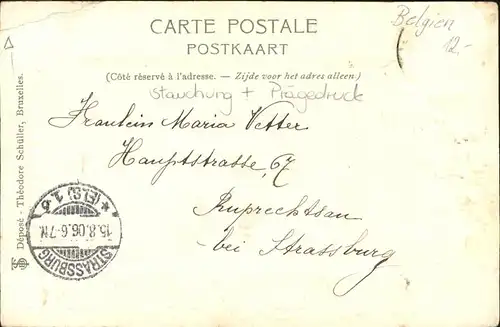 CARTE POSTALE
POSTKAART
Belgien
12.-
(Côté réservé à l'adresse. — Zijde voor het adres alleen.)
Stauchung + Prägedruck
Fraulein Maria Vetter
Hauptstrasse, 67
Ruprechtsau
bei Strassburg
STRASSBURG
15.8.06.6-7N.
* (ELS) 1. d
TS Déposé - Théodore Schüller, Bruxelles.